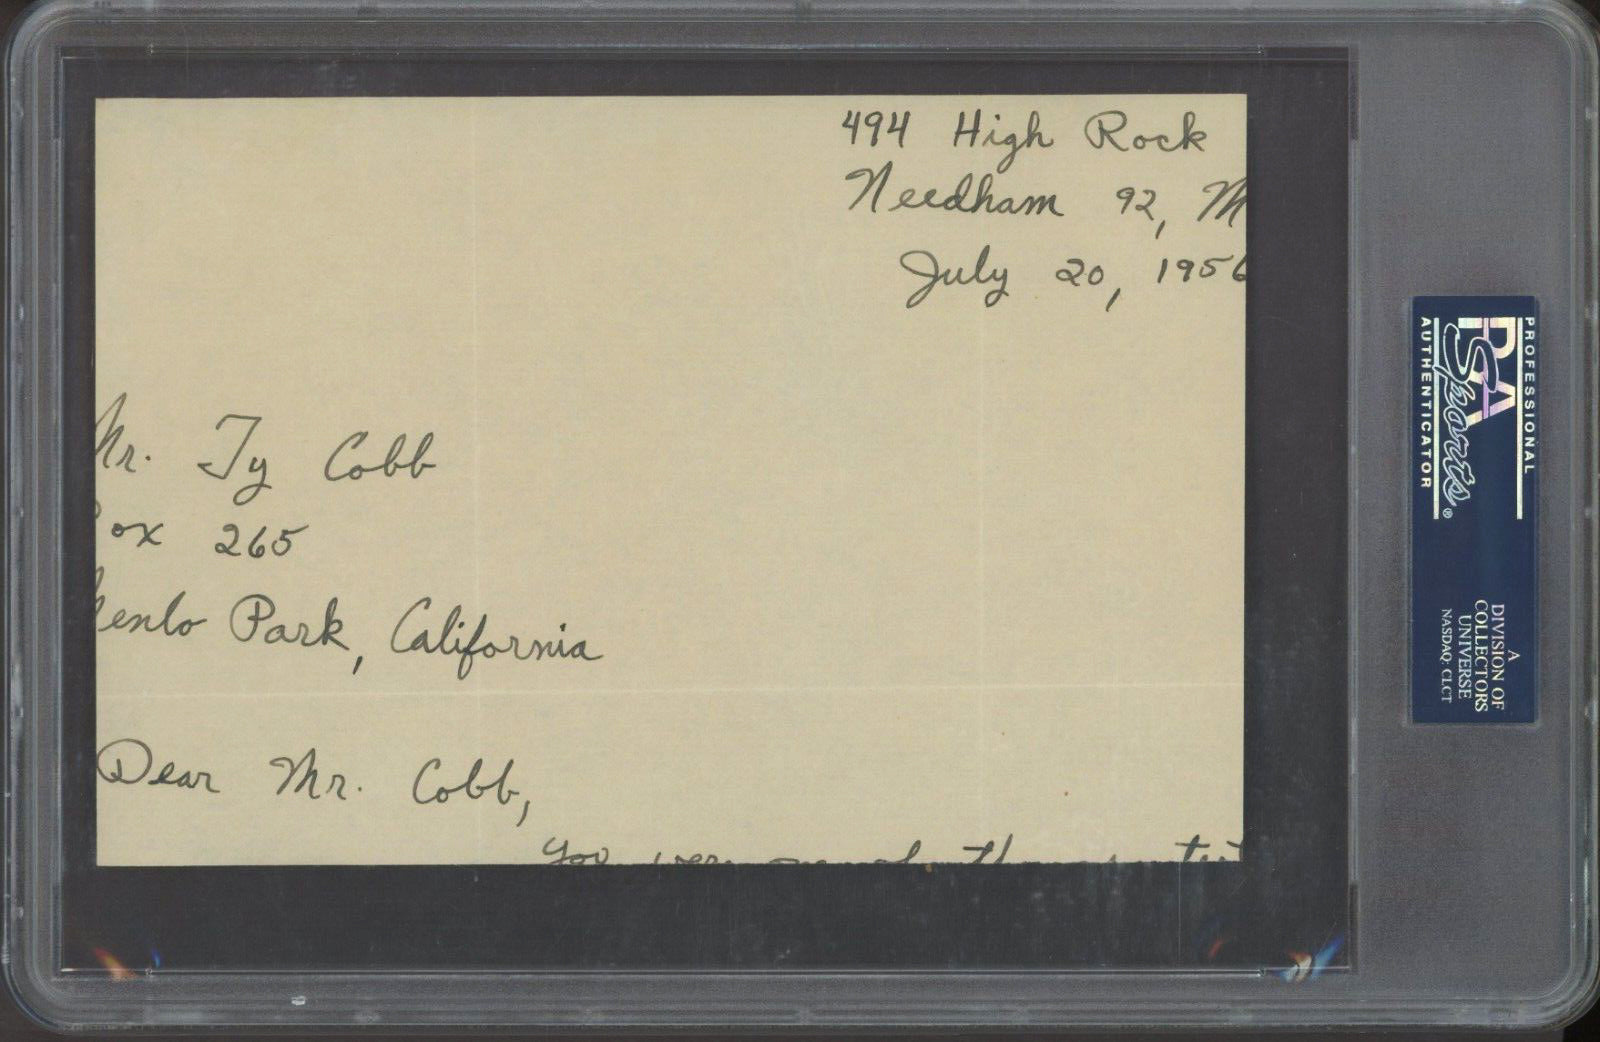 494 High Rock
Needham 92, M
July 20, 1956
Mr. Ty Cobb
Box 265
Menlo Park, California
Dear Mr. Cobb,
You were
PROFESSIONAL
PSA
Sports®
AUTHENTICATOR
A
DIVISION OF
COLLECTORS
UNIVERSE
NASDAQ: CLCT